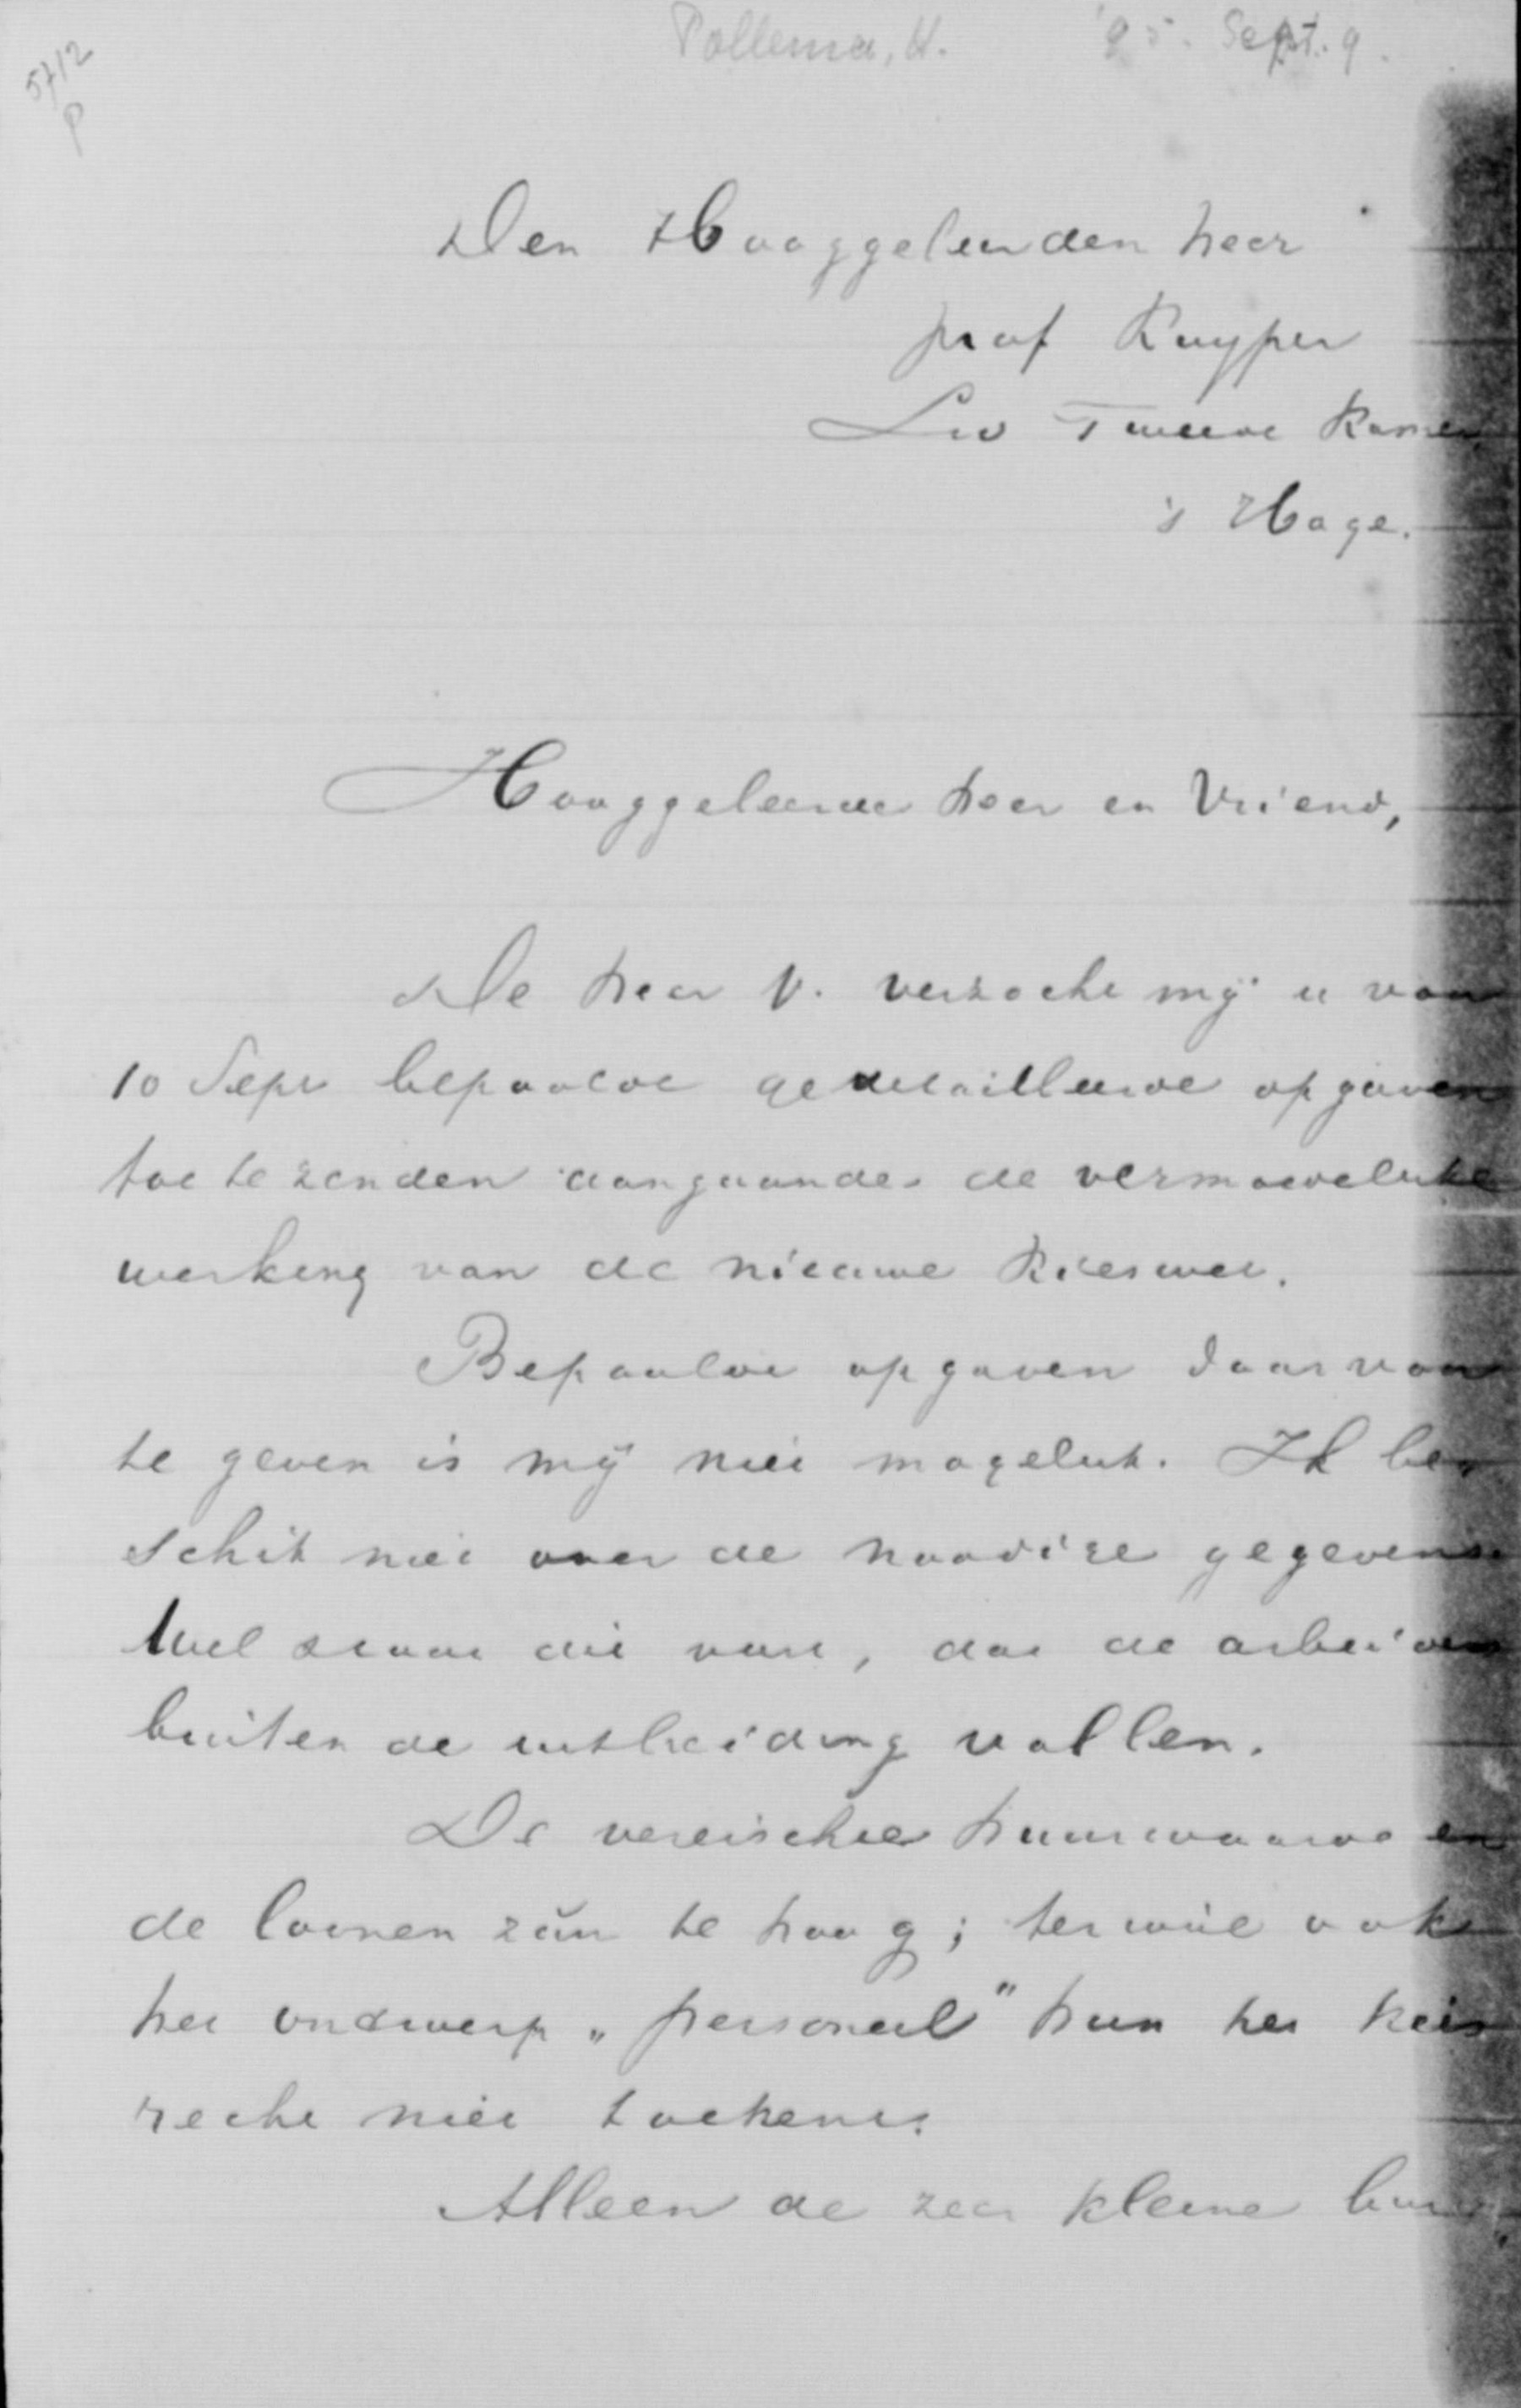 Pollema, H. '95. Sept. 9.
5712
P
Den Hooggeleerden heer
prof Kuyper
Lid Tweede Kamer
's Hage.
Hooggeleerde heer en Vriend,
De heer V. verzocht mij u voor
10 Sept bepaalde gedetailleerde opgaven
toe te zenden aangaande de vermoedelijke
werking van de nieuwe kieswet.
Bepaalde opgaven daarvan
te geven is mij niet mogelijk. Ik be-
schik niet over de noodige gegevens.
Wel staat dit vast, dat de arbeiders
buiten de uitbreiding vallen.
De vereischte huurwaarde en
de loonen zijn te hoog; terwijl ook
het ontwerp „personeel" hun het kies
recht niet toekent.
Alleen de zeer kleine